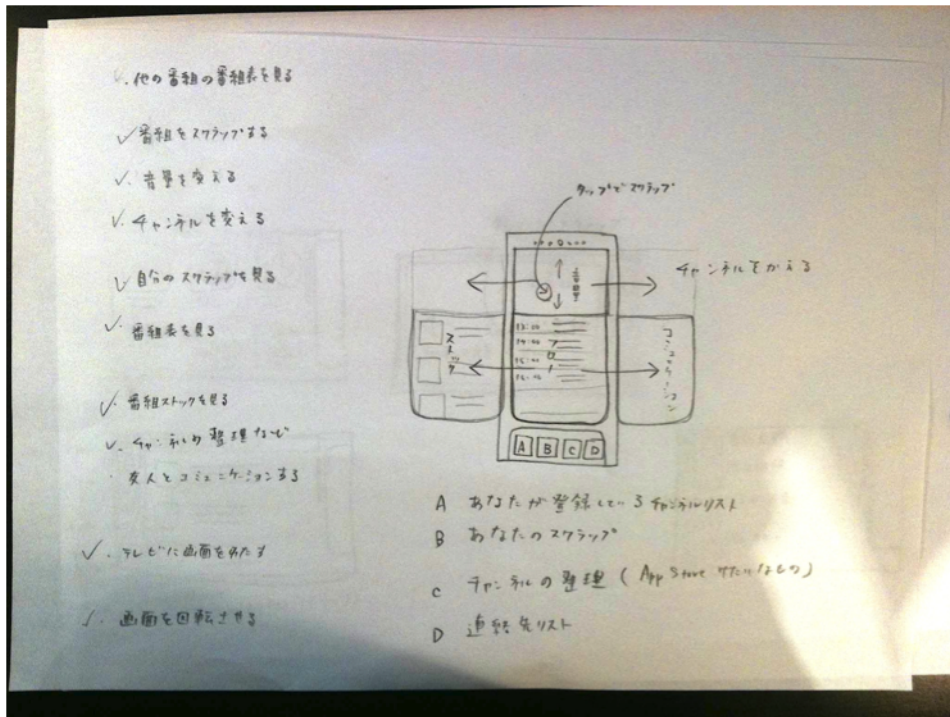 他の番組の番組表を見る
番組をスクラップする
音量を変える
チャンネルを変える
自分のスクラップを見る
番組表を見る
番組ストックを見る
チャンネルの整理など
友人とコミュニケーションする
テレビに画面をわたす
画面を回転させる
タップでスクラップ
チャンネルをかえる
音量
ストック
13:00
14:00
15:00
16:00
フロー
コミュニケーション
A B C D
A あなたが登録しているチャンネルリスト
B あなたのスクラップ
C チャンネルの整理 (App Store みたいなもの)
D 連絡先リスト